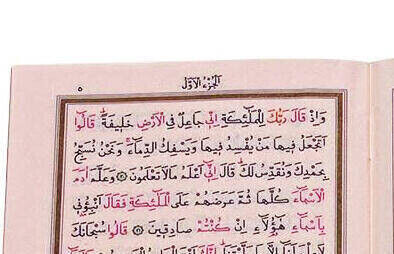 ٥ الجزء الأول
وَإِذْ قَالَ رَبُّكَ لِلْمَلٰٓئِكَةِ اِنّ۪ي جَاعِلٌ فِي الْاَرْضِ خَل۪يفَةًۜ قَالُٓوا
اَتَجْعَلُ ف۪يهَا مَنْ يُفْسِدُ ف۪يهَا وَيَسْفِكُ الدِّمَٓاءَۚ وَنَحْنُ نُسَبِّحُ
بِحَمْدِكَ وَنُقَدِّسُ لَكَۜ قَالَ اِنّ۪ٓي اَعْلَمُ مَا لَا تَعْلَمُونَ ۞ وَعَلَّمَ اٰدَمَ
الْاَسْمَٓاءَ كُلَّهَا ثُمَّ عَرَضَهُمْ عَلَى الْمَلٰٓئِكَةِ فَقَالَ اَنْبِؤُ۫ن۪ي
بِاَسْمَٓاءِ هٰٓؤُ۬لَٓاءِ اِنْ كُنْتُمْ صَادِق۪ينَ ۞ قَالُوا سُبْحَانَكَ